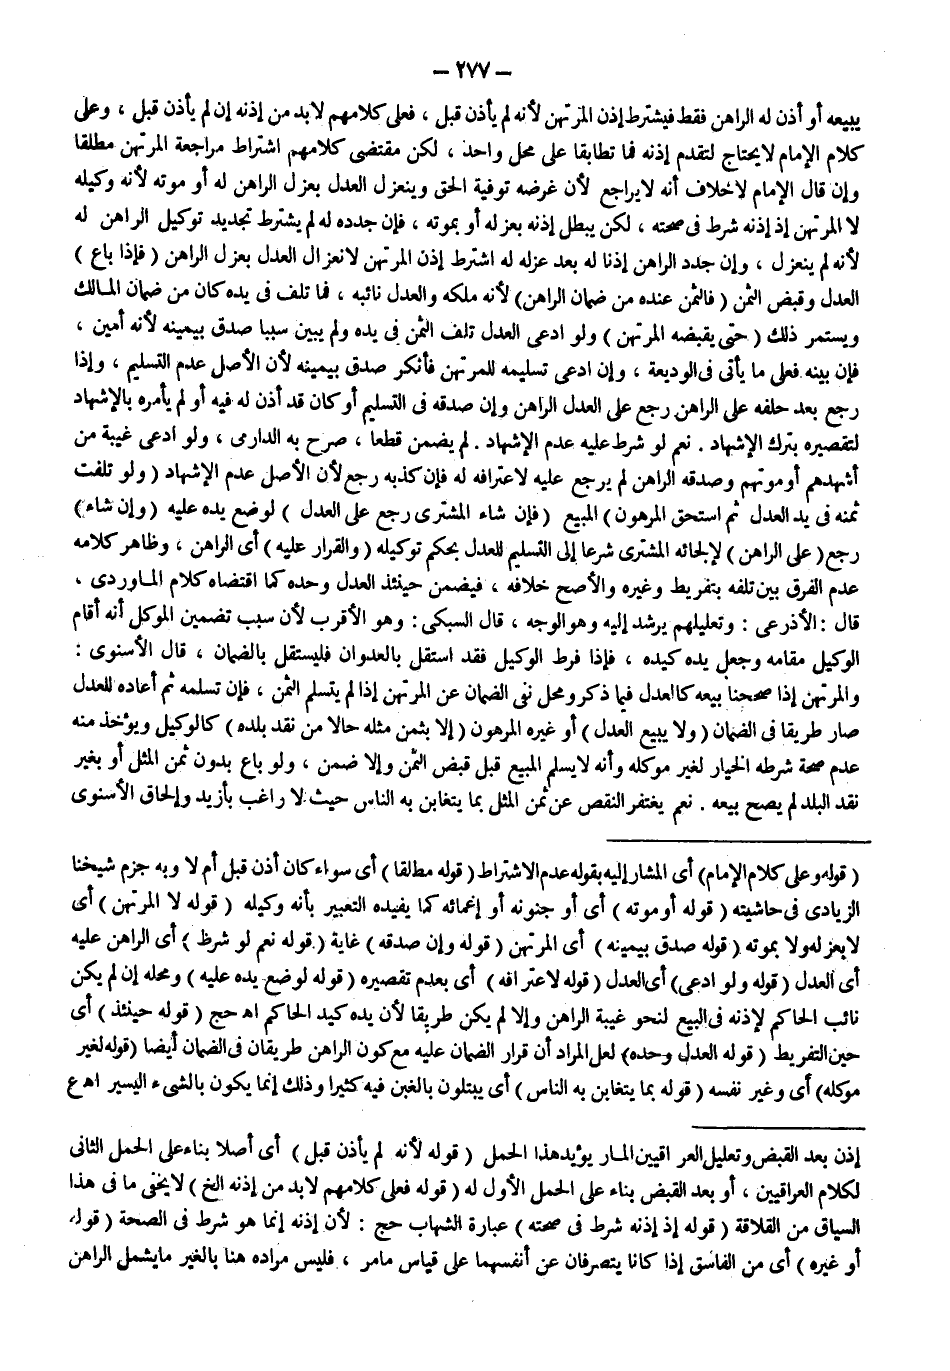 – ٢٧٧ –
يبيعه أو أذن له الراهن فقط فيشترط إذن المرتهن لأنه لم يأذن قبل ، فعلى كلامهم لابد من إذنه إن لم يأذن قبل ، وعلى
كلام الإمام لايحتاج لتقدم إذنه فما تطابقا على محل واحد ، لكن مقتضى كلامهم اشتراط مراجعة المرتهن مطلقا
وإن قال الإمام لاخلاف أنه لايراجع لأن غرضه توفية الحق وينعزل العدل بعزل الراهن له أو موته لأنه وكيله
لا المرتهن إذ إذنه شرط فى صحته ، لكن يبطل إذنه بعزله أو بموته ، فإن جدده له لم يشترط تجديد توكيل الراهن له
لأنه لم ينعزل ، وإن جدد الراهن إذنا له بعد عزله له اشترط إذن المرتهن لانعزال العدل بعزل الراهن ( فإذا باع )
العدل وقبض الثمن ( فالثمن عنده من ضمان الراهن) لأنه ملكه والعدل نائبه ، فما تلف فى يده كان من ضمان المالك
ويستمر ذلك ( حتى يقبضه المرتهن ) ولو ادعى العدل تلف الثمن فى يده ولم يبين سببا صدق بيمينه لأنه أمين ،
فإن بينه فعلى ما يأتى فى الوديعة ، وإن ادعى تسليمه للمرتهن فأنكر صدق بيمينه لأن الأصل عدم التسليم ، وإذا
رجع بعد حلفه على الراهن رجع على العدل الراهن وإن صدقه فى التسليم أو كان قد أذن له فيه أو لم يأمره بالإشهاد
لتقصيره بترك الإشهاد . نعم لو شرط عليه عدم الإشهاد . لم يضمن قطعا ، صرح به الدارمى ، ولو ادعى غيبة من
أشهدهم أو موتهم وصدقه الراهن لم يرجع عليه لاعترافه له فإن كذبه رجع لأن الأصل عدم الإشهاد ( ولو تلفت
ثمنه فى يد العدل ثم استحق المرهون ) المبيع ( فإن شاء المشترى رجع على العدل ) لوضع يده عليه ( وإن شاء )
رجع ( على الراهن ) لإلجائه المشترى شرعا إلى التسليم للعدل بحكم توكيله ( والقرار عليه ) أى الراهن ، وظاهر كلامه
عدم الفرق بين تلفه بتفريط وغيره والأصح خلافه ، فيضمن حينئذ العدل وحده كما اقتضاه كلام الماوردى ،
قال : الأذرعى : وتعليلهم يرشد إليه وهو الوجه ، قال السبكى : وهو الأقرب لأن سبب تضمين الموكل أنه أقام
الوكيل مقامه وجعل يده كيده ، فإذا فرط الوكيل فقد استقل بالعدوان فليستقل بالضمان ، قال الأسنوى :
والمرتهن إذا صححنا بيعه كالعدل فيما ذكر ومحل نفى الضمان عن المرتهن إذا لم يتسلم الثمن ، فإن تسلمه ثم أعاده للعدل
صار طريقا فى الضمان ( ولا يبيع العدل ) أو غيره المرهون ( إلا بثمن مثله حالا من نقد بلده ) كالوكيل ويؤخذ منه
عدم صحة شرطه الخيار لغير موكله وأنه لايسلم المبيع قبل قبض الثمن وإلا ضمن ، ولو باع بدون ثمن المثل أو بغير
نقد البلد لم يصح بيعه . نعم يغتفر النقص عن ثمن المثل بما يتغابن به الناس حيث لا راغب بأزيد وإلحاق الأسنوى
( قوله وعلى كلام الإمام) أى المشار إليه بقوله عدم الاشتراط ( قوله مطلقا ) أى سواء كان أذن قبل أم لا وبه جزم شيخنا
الزيادى فى حاشيته ( قوله أو موته ) أى أو جنونه أو إغمائه كما يفيده التعبير بأنه وكيله ( قوله لا المرتهن ) أى
لا بعزله ولا بموته ( قوله صدق بيمينه ) أى المرتهن ( قوله وإن صدقه ) غاية ( قوله نعم لو شرط ) أى الراهن عليه
أى العدل ( قوله ولو ادعى) أى العدل ( قوله لاعترافه ) أى بعدم تقصيره ( قوله لوضع يده عليه ) ومحله إن لم يكن
نائب الحاكم لإذنه فى البيع لنحو غيبة الراهن وإلا لم يكن طريقا لأن يده كيد الحاكم اه حج ( قوله حينئذ ) أى
حين التفريط ( قوله العدل وحده) لعل المراد أن قرار الضمان عليه مع كون الراهن طريقان فى الضمان أيضا (قوله لغير
موكله) أى وغير نفسه ( قوله بما يتغابن به الناس ) أى يبتلون بالغبن فيه كثيرا وذلك إنما يكون بالشىء اليسير اه ع
إذن بعد القبض وتعليل العراقيين المار يؤيد هذا الحمل ( قوله لأنه لم يأذن قبل ) أى أصلا بناء على الحمل الثانى
لكلام العراقيين ، أو بعد القبض بناء على الحمل الأول له ( قوله فعلى كلامهم لابد من إذنه الخ ) لايخفى ما فى هذا
السياق من القلاقة ( قوله إذ إذنه شرط فى صحته ) عبارة الشهاب حج : لأن إذنه إنما هو شرط فى الصحة ( قوله
أو غيره ) أى من الفاسق إذا كانا يتصرفان عن أنفسهما على قياس مامر ، فليس مراده هنا بالغير مايشمل الراهن